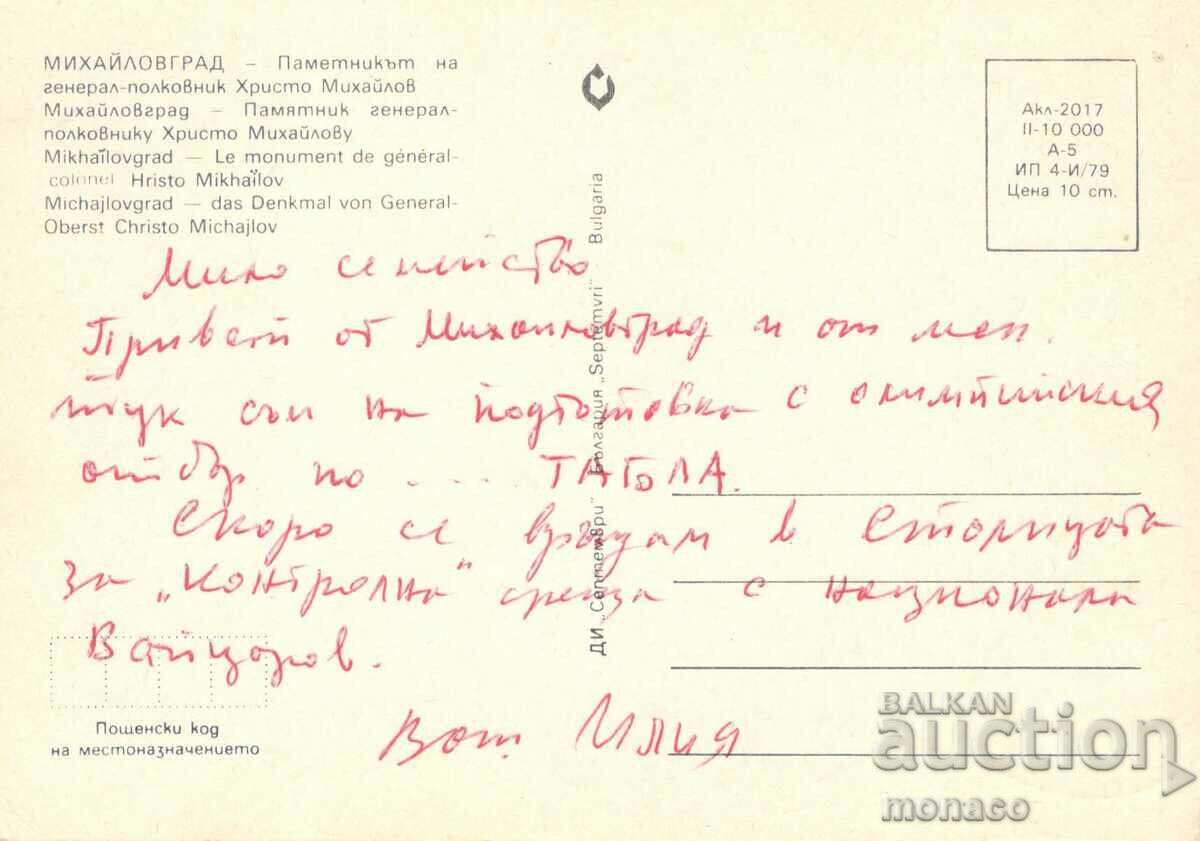 МИХАЙЛОВГРАД – Паметникът на
генерал-полковник Христо Михайлов
Михайловград – Памятник генерал-
полковнику Христо Михайлову
Mikhaïlovgrad – Le monument de général-
colonel Hristo Mikhaïlov
Michajlovgrad – das Denkmal von General-
Oberst Christo Michajlov
ДИ „Септември" България „Septemvri" Bulgaria
Акл-2017
II-10 000
А-5
ИП 4-И/79
Цена 10 ст.
Мило семейство
Привет от Михайловград и от мен.
тук съм на подготовка с олимпийския
отбър по .... ТАБЛА.
Скоро се връщам в Столицата
за „контролна" среща с национала
Вайцоров.
Ваш Илия
Пощенски код
на местоназначението
BALKAN
auction
monaco